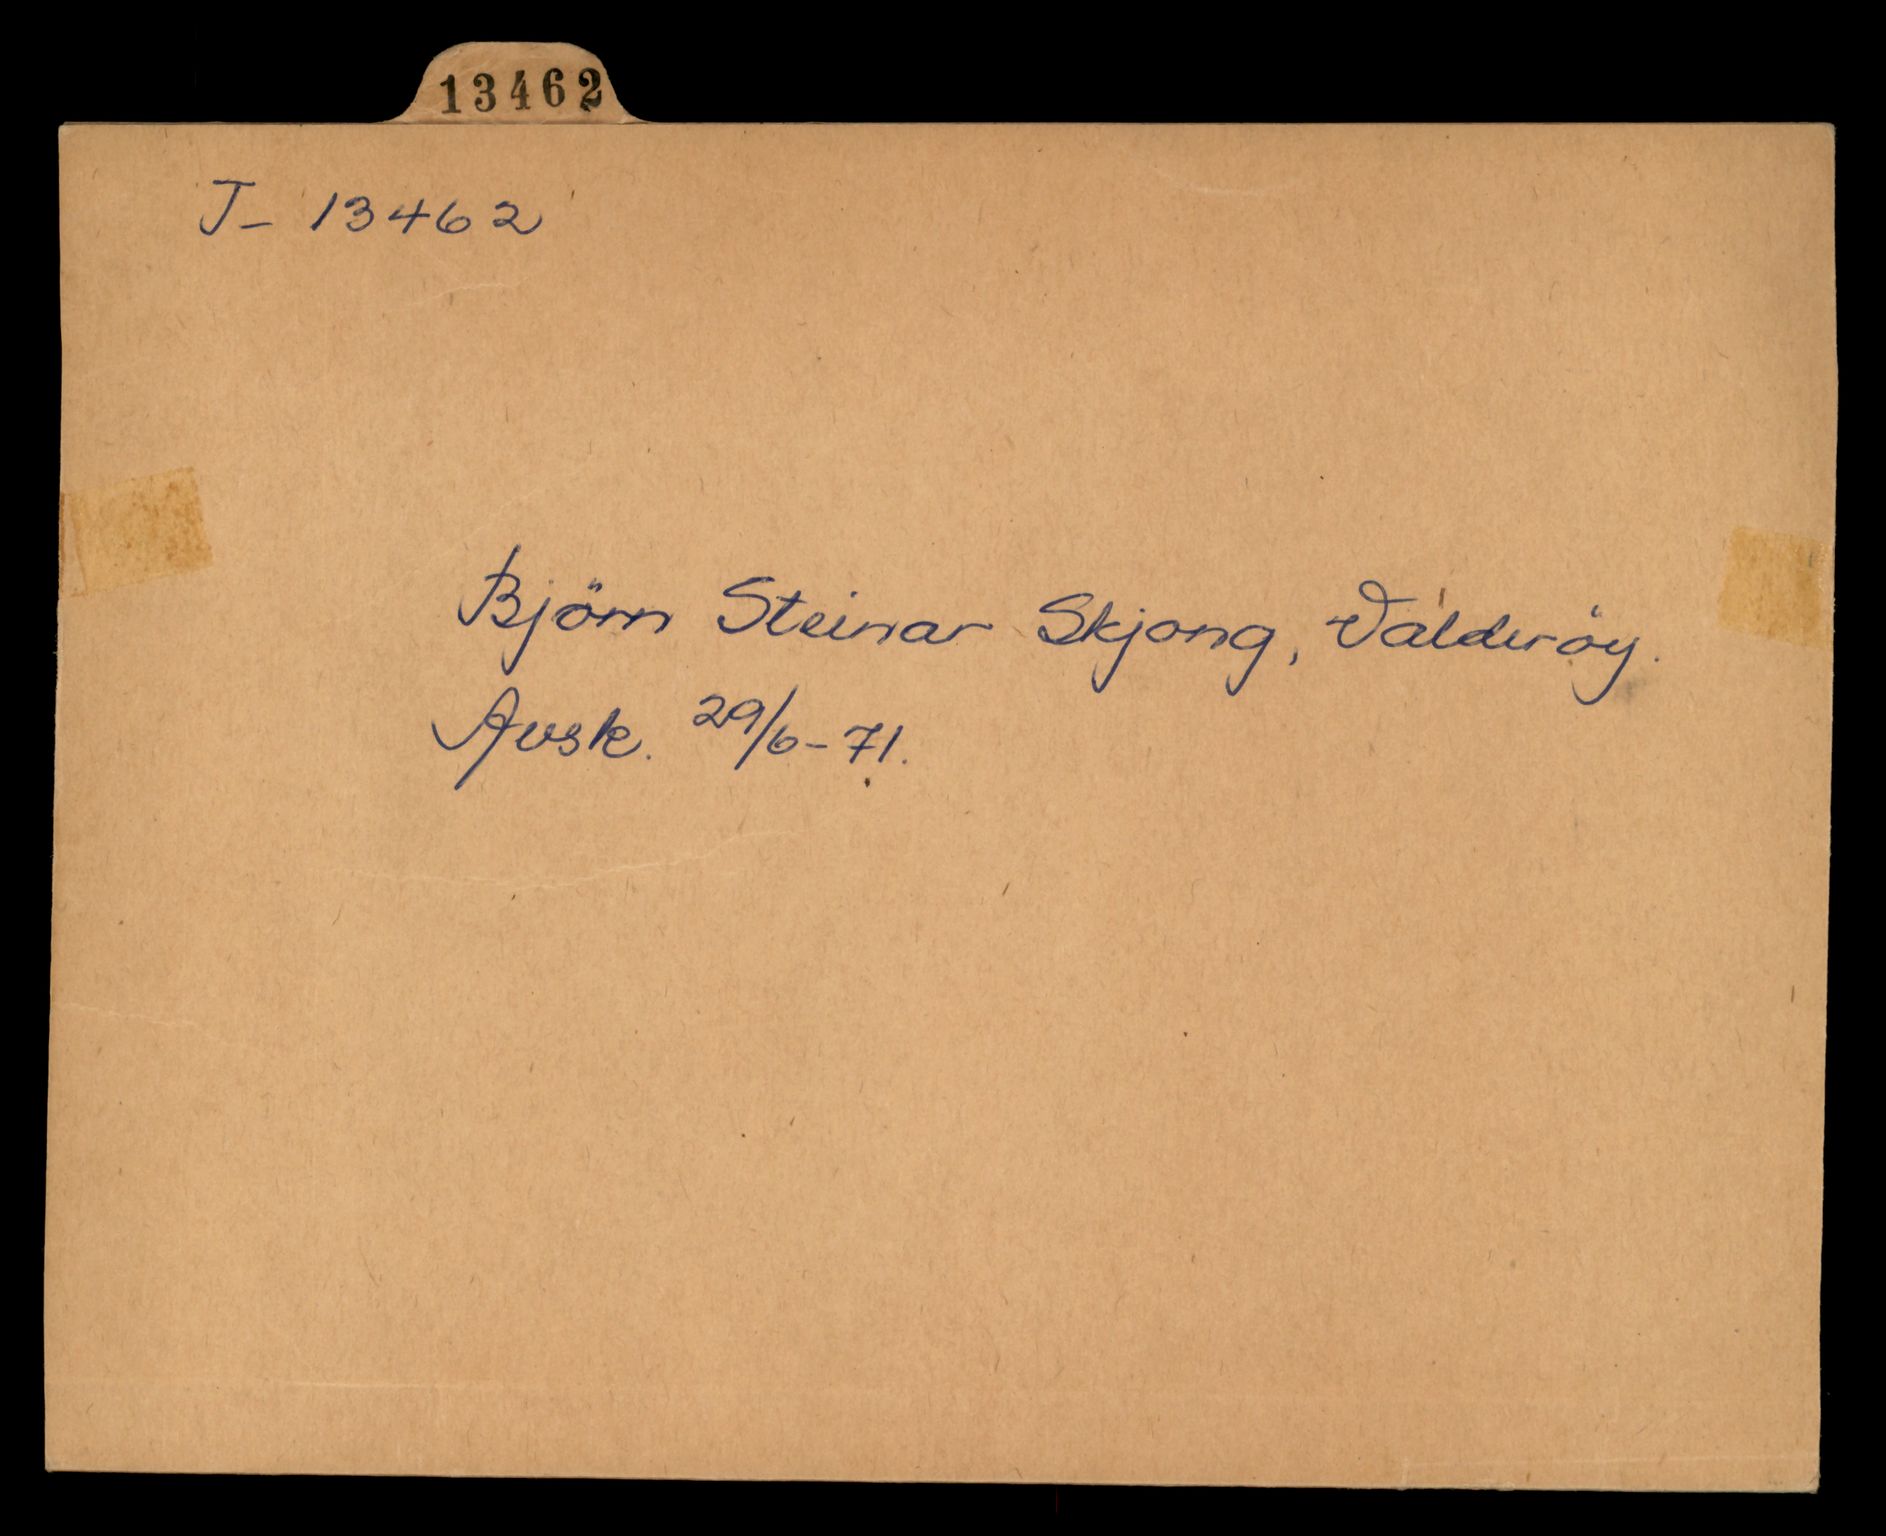 13462
J- 13462
Björn Steinar Skjong, Valderöy.
Avsk. 29/6-71.